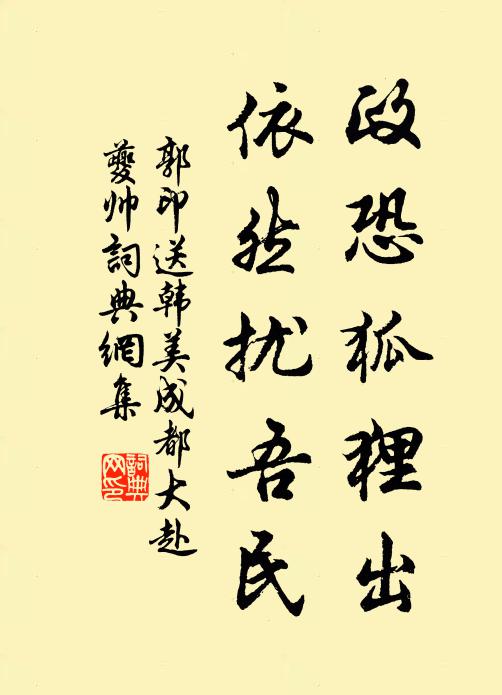 政恐狐狸出
依然扰吾民
郭印送韩美成都大赴
夔帅词典網集
詞典
网印